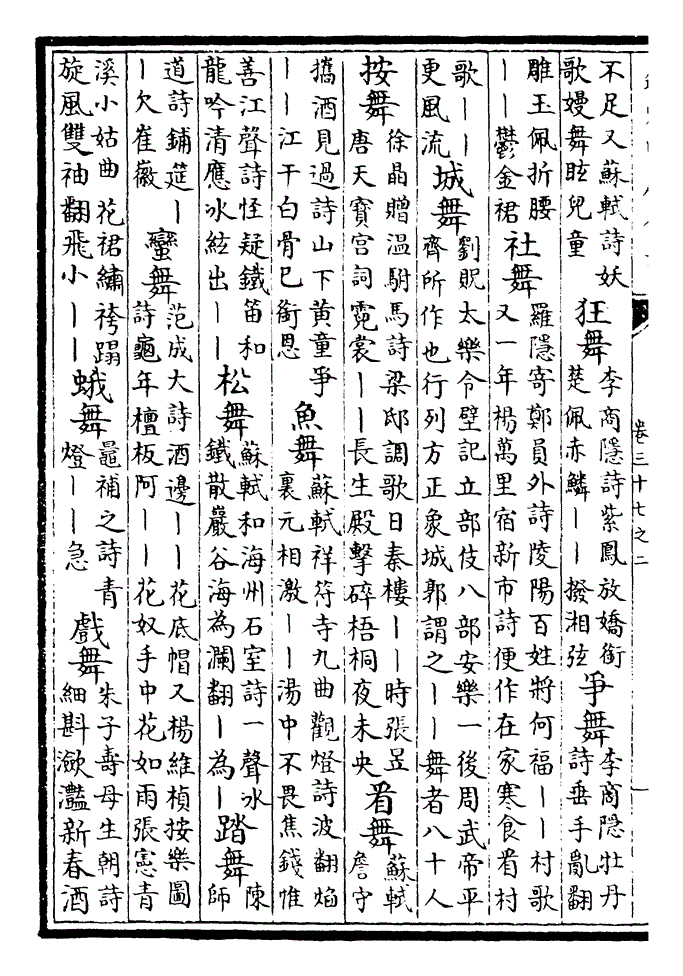 不足又蘇軾詩妖
歌嫚舞眩兒童
狂舞
李商隱詩紫鳳放嬌銜
楚佩赤鱗丨丨撥湘弦
爭舞
李商隱牡丹
詩垂手亂翻
雕玉佩折腰
丨丨鬱金裙
社舞
羅隱寄鄭員外詩陵陽百姓將何福丨丨村歌
又一年楊萬里宿新市詩便作在家寒食看村
歌丨丨
更風流
城舞
劉貺太樂令壁記立部伎八部安樂一後周武帝平
齊所作也行列方正象城郭謂之丨丨舞者八十人
按舞
徐晶贈溫駙馬詩梁邸調歌日秦樓丨丨時張昱
唐天寶宮詞霓裳丨丨長生殿擊碎梧桐夜未央
看舞
蘇軾
詹守
攜酒見過詩山下黃童爭
丨丨江干白骨已銜恩
魚舞
蘇軾祥符寺九曲觀燈詩波翻焰
裏元相激丨丨湯中不畏焦錢惟
善江聲詩怪疑鐵笛和
龍吟清應冰絃出丨丨
松舞
蘇軾和海州石室詩一聲冰
鐵散巖谷海為瀾翻丨為丨
踏舞
陳
師
道詩鋪筵丨
丨欠崔薇
蠻舞
范成大詩酒邊丨丨花底帽又楊維楨按樂圖
詩龜年檀板阿丨丨花奴手中花如雨張憲青
溪小姑曲花裙繡袴蹋
旋風雙袖翻飛小丨丨
蛾舞
鼂補之詩青
燈丨丨急
戲舞
朱子壽母生朝詩
細斟瀲灩新春酒
卷三十七之二